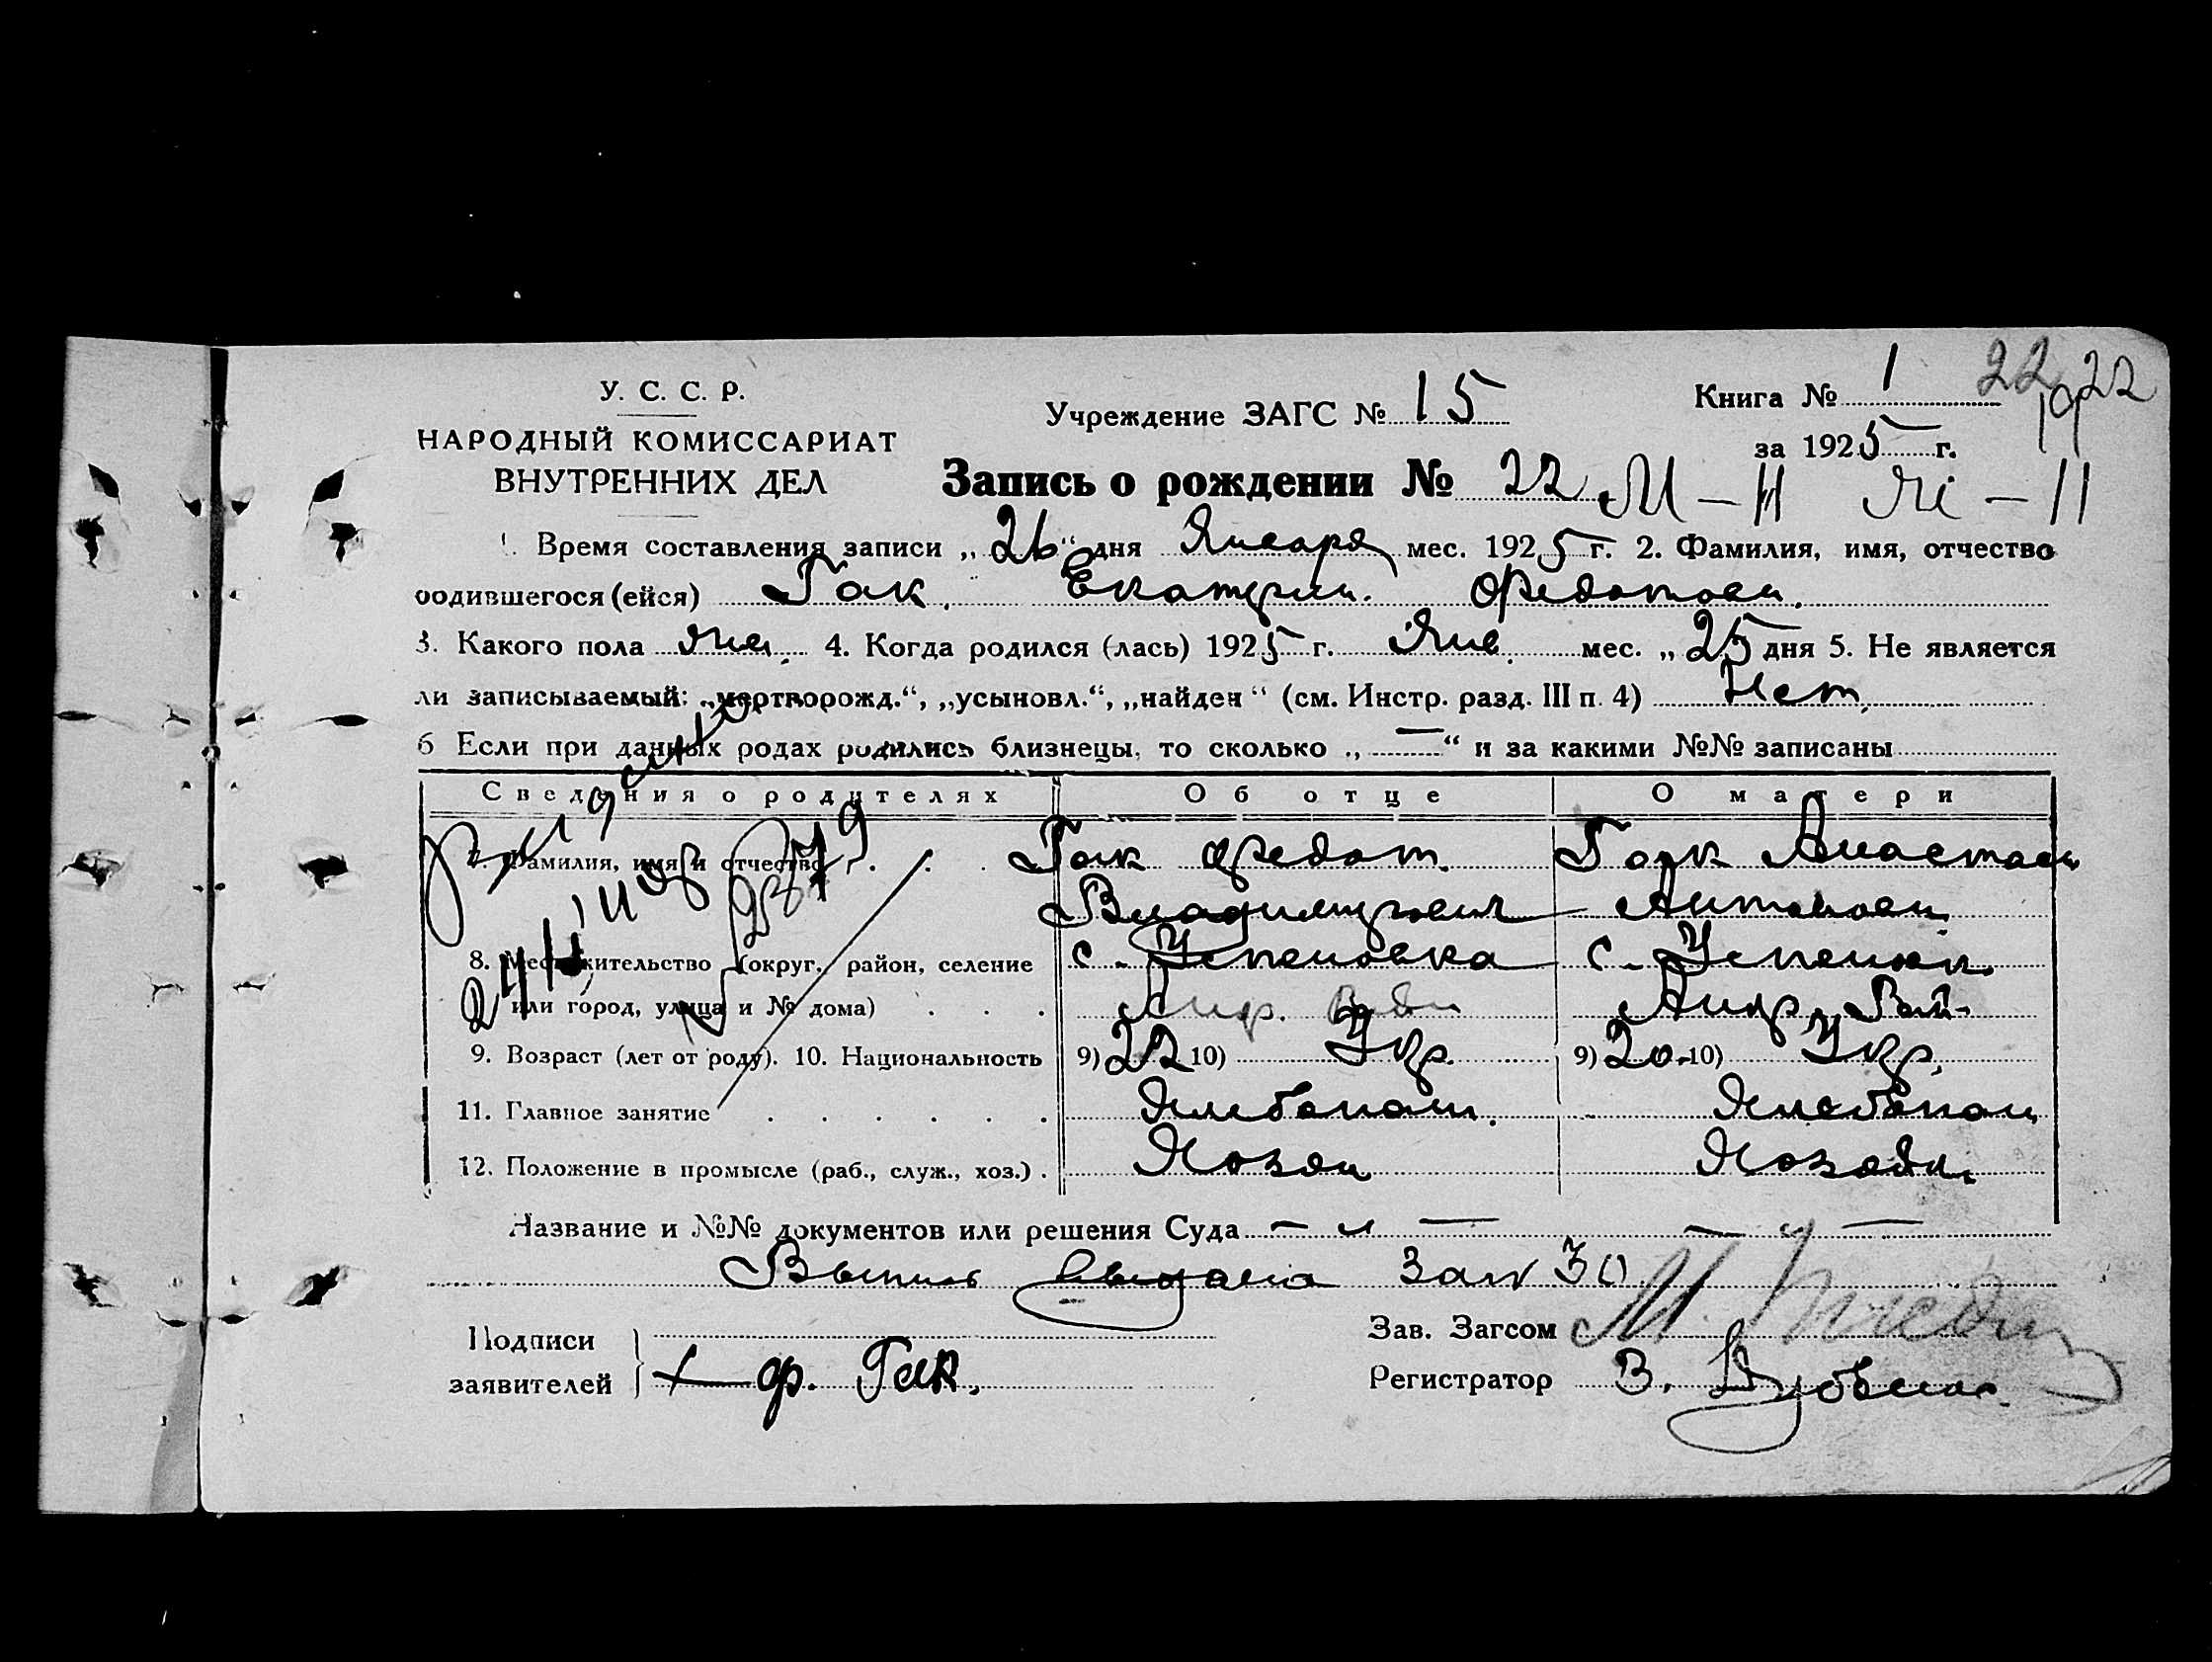 У. С. С. Р.
НАРОДНЫЙ КОМИССАРИАТ
ВНУТРЕННИХ ДЕЛ
Учреждение ЗАГС № 15
Книга № 1 22 22
за 1925 г.
Запись о рождении № 22 М – II
1. Время составления записи „26“ дня Января мес. 1925 г. 2. Фамилия, имя, отчество
родившегося (ейся) Гак. Екатерин. Федотовн.
3. Какого пола жен. 4. Когда родился (лась) 1925 г. Янв. мес. „25 дня 5. Не является
ли записываемый: „мертворожд.“, „усыновл.“, „найден“ (см. Инстр. разд. III п. 4) Нет.
6 Если при данных родах родились близнецы, то сколько „—“ и за какими №№ записаны
Сведения о родителях Об отце О матери
7. Фамилия, имя и отчество Гак Федот. Гак Анастаси
Владимирович Антоновн.
8. Местожительство (округ, район, селение с. Успеновка с. Успенов.
или город, улица и № дома) Андр. Андр. Рай-
9. Возраст (лет от роду). 10. Национальность 9) 22 10) Укр. 9) 20 10) Укр.
11. Главное занятие Хлебопаш. Хлебопаш
12. Положение в промысле (раб., служ., хоз.) Хозяи Хозяй.
Название и №№ документов или решения Суда — „ — — „ —
Выпись выдана за № 30
Подписи
заявителей + ф. Гак.
Зав. Загсом М.
Регистратор В.